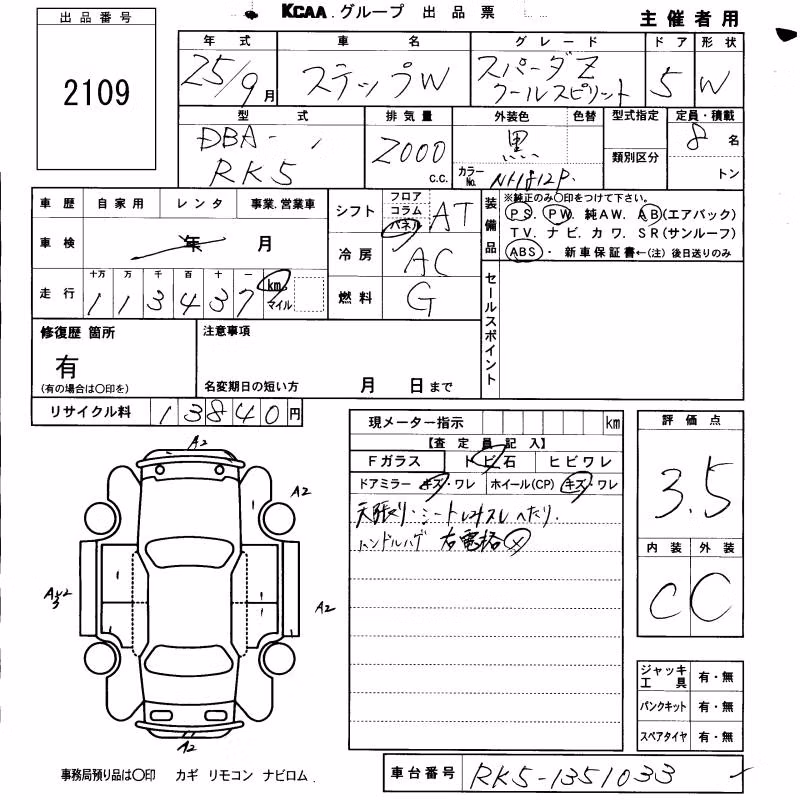 KCAA グループ 出品票
主催者用
出品番号
2109
年式 車名 グレード ドア 形状
25/9月 ステップW スパーダZ クールスピリット 5 W
型式 排気量 外装色 色替 型式指定 定員・積載
DBA- RK5 2000 c.c. 黒 カラーNo. 類別区分 8名
トン
車歴 自家用 レンタ 事業.営業車
車検 年 月
走行 十万 万 千 百 十 一
113437 km マイル
シフト フロア コラム パネル AT
冷房 AC
燃料 G
装備品 ※純正のみ○印をつけて下さい。
PS. PW. 純AW. AB(エアバック)
TV. ナビ. カワ. SR(サンルーフ)
ABS・ 新車保証書←(注)後日送りのみ
セールスポイント
修復歴 箇所
有
(有の場合は○印を)
注意事項
名変期日の短い方 月 日まで
リサイクル料 13840円
現メーター指示 km
【査定員記入】
Fガラス トビ石 ヒビワレ
ドアミラー キズ・ワレ ホイール(CP) キズ・ワレ
天張り・シートヨゴレスレへたり.
ハンドルハゲ 右電格×
評価点
3.5
内装 外装
C C
A2
A2
A2
A2
ジャッキ工具 有・無
パンクキット 有・無
スペアタイヤ 有・無
事務局預り品は○印 カギ リモコン ナビロム.
車台番号 RK5-1351033